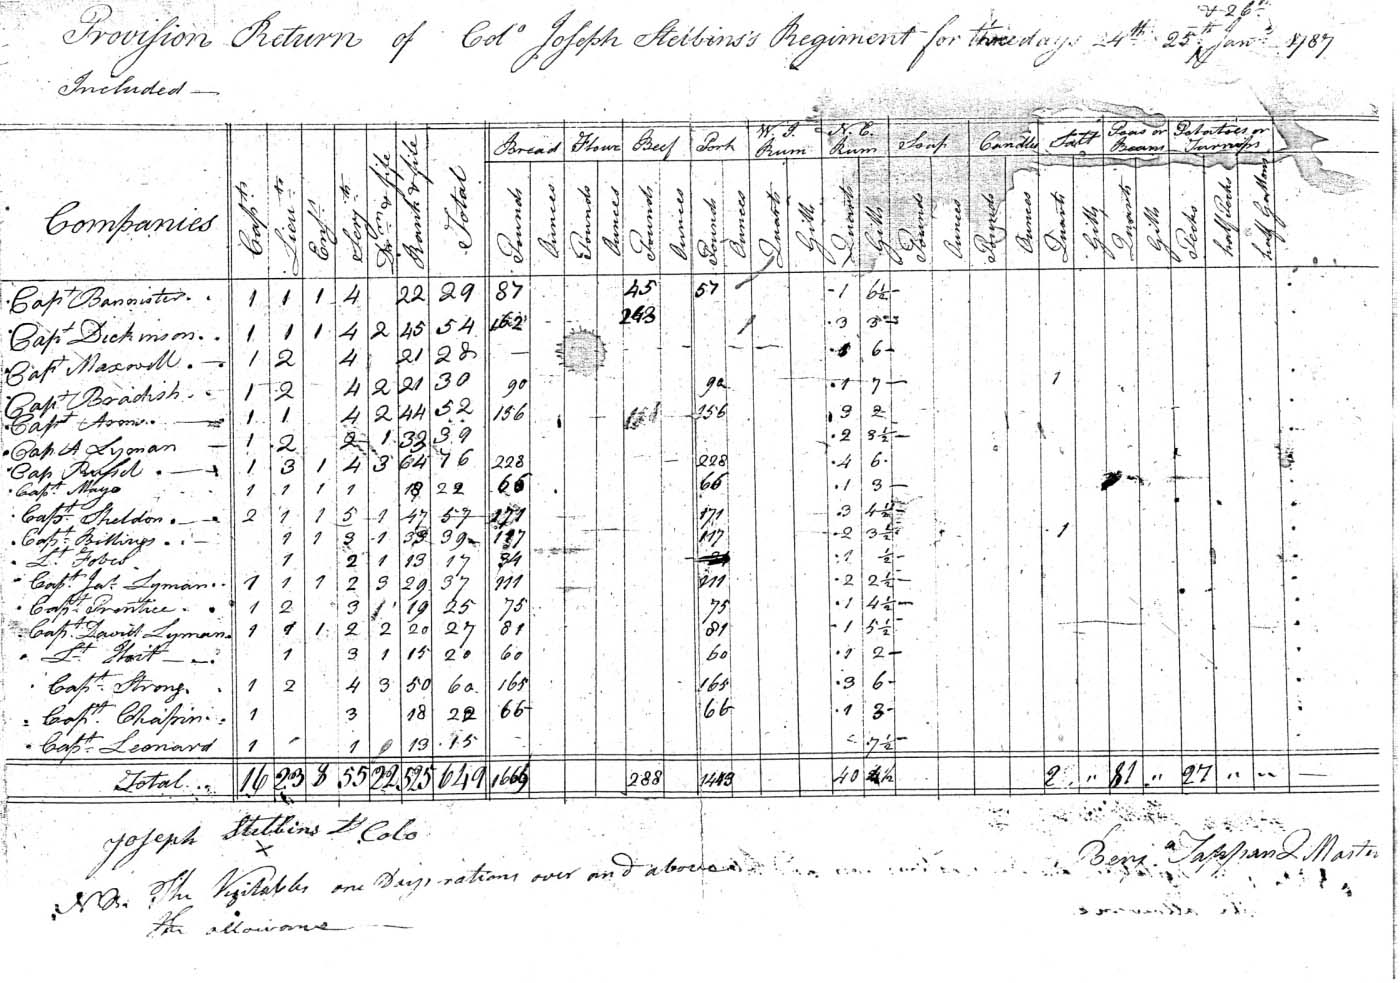 & 26th
Provision Return of Colo Joseph Stebbins's Regiment for three days 24th 25th Jany 1787
Included —
Companies Capts Lieuts Ens Serjts Drum & fife Rank & file Total Bread Flour Beef Pork W. I. Rum N. E. Rum Soap Candles Salt Peas or Beans Potatoes or Turnips
Pounds Ounces Pounds Ounces Pounds Ounces Pounds Ounces Quarts Gills Quarts Gills Pounds Ounces Pounds Ounces Quarts Gills Quarts Gills Pecks half Pecks half Gallons
Capt Bannister 1 1 1 4 22 29 87 45 57 1 6½
Capt Dickinson 1 1 1 4 2 45 54 162 243 3 3
Capt Maxwell 1 2 4 21 28 — 6
Capt Bradish 1 2 4 2 21 30 90 90 1 7 1
Capt Arms 1 1 4 2 44 52 156 156 3 2
Cap A Lyman 1 2 2 1 33 39 2 3½
Cap Russel 1 3 1 4 3 64 76 228 228 4 6
Capt Mayo 1 1 1 1 18 22 66 66 1 3
Capt Sheldon 2 1 1 5 1 47 57 171 171 3 4½
Capt Billings 1 1 3 1 33 39 117 117 2 3½ 1
Lt Fobes 1 2 1 13 17 34 1 ½
Capt Jas Lyman 1 1 1 2 3 29 37 111 111 2 2½
Capt Prentice 1 2 3 19 25 75 75 1 4½
Capt David Lyman 1 1 1 2 2 20 27 81 81 1 5½
Lt Hoit 1 3 1 15 20 60 60 1 2
Capt Strong 1 2 4 3 50 60 165 165 3 6
Capt Chapin 1 3 18 22 66 66 1 3
Capt Leonard 1 1 13 15 7½
Total 16 23 8 55 22 525 649 1665 288 1443 40 2 " 81 " 27 " " —
Joseph Stebbins Lt Colo
Benja Tappan Q Master
NB. The Vegitables one Days rations over and above
the allowance —